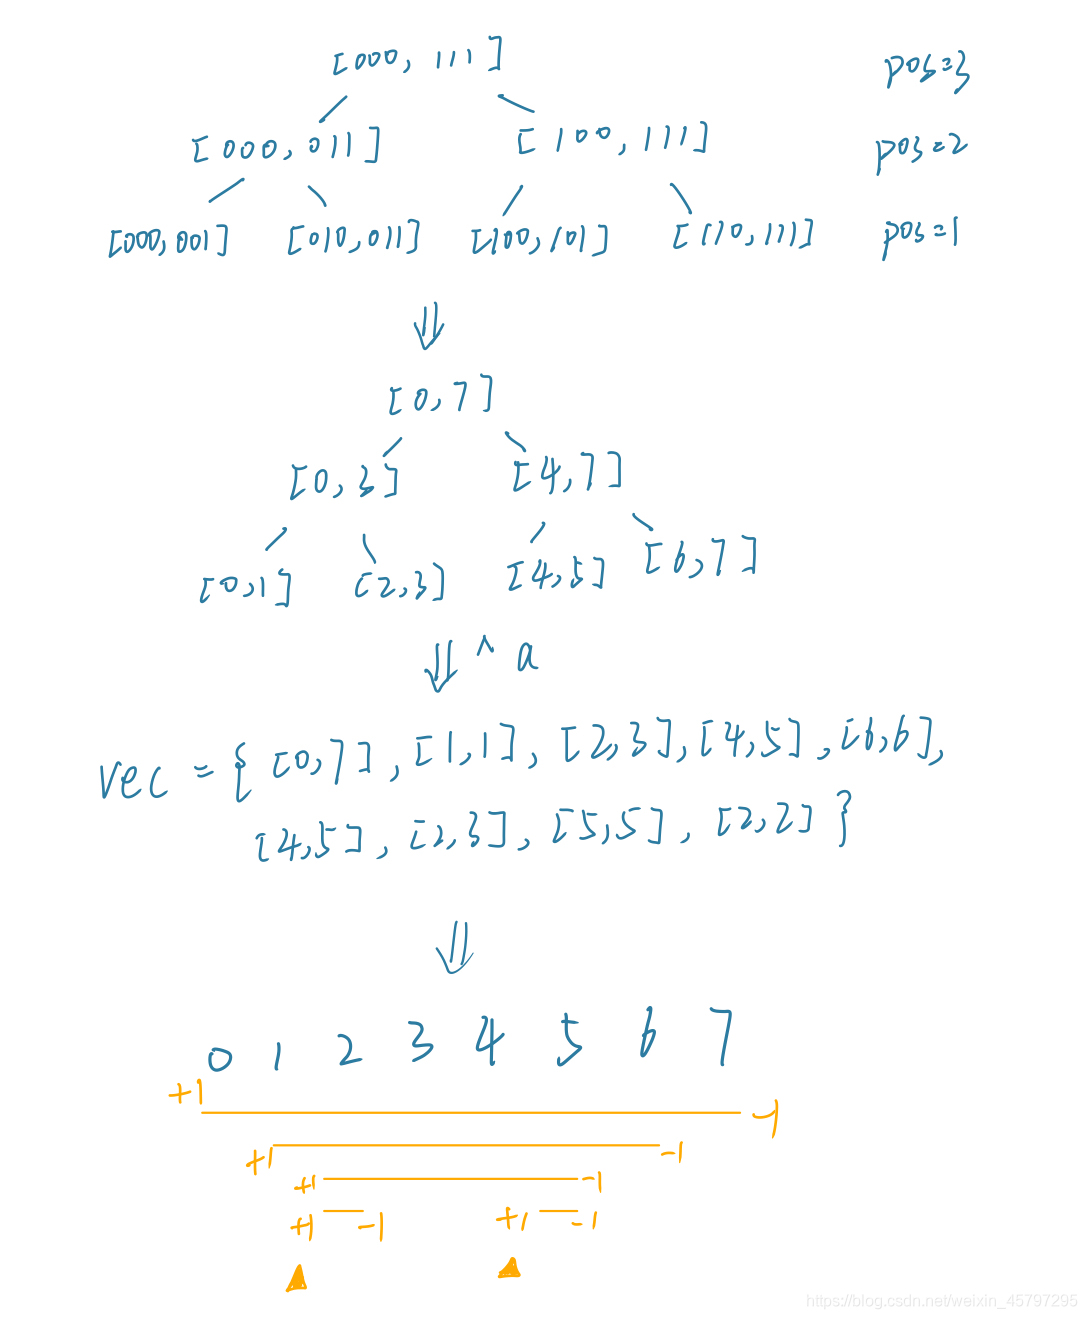 [000, 111] pos=3
[000, 011] [100, 111] pos=2
[000,001] [010,011] [100,101] [110,111] pos=1
⇓
[0,7]
[0,3] [4,7]
[0,1] [2,3] [4,5] [6,7]
⇓ ^ a
vec = { [0,7], [1,1], [2,3], [4,5], [6,6],
[4,5], [2,3], [5,5], [2,2] }
⇓
0 1 2 3 4 5 6 7
+1 -1
+1 -1
+1 -1
+1 -1 +1 -1
https://blog.csdn.net/weixin_45797295